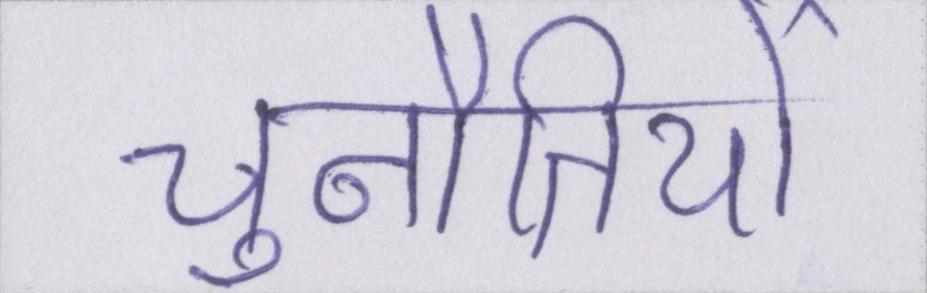 चुनौतियों